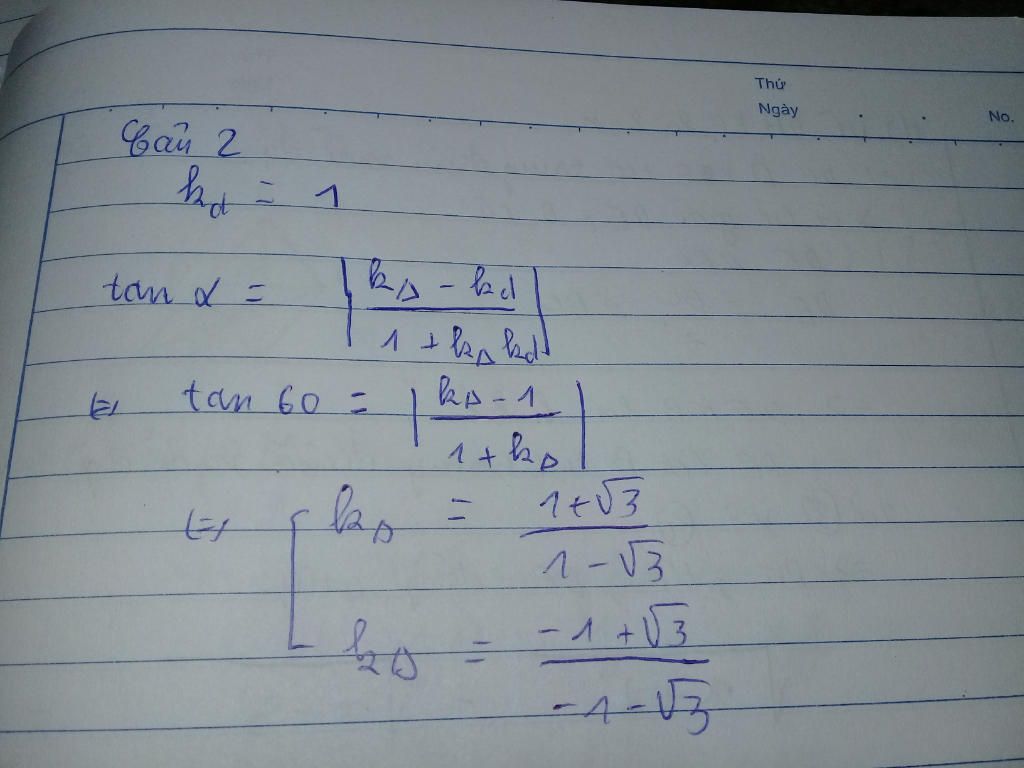 Thứ
Ngày . . No.
Câu 2
k_d = 1
tan α = |(k_Δ - k_d)/(1 + k_Δ k_d)|
⇔ tan 60 = |(k_Δ - 1)/(1 + k_Δ)|
⇔ [ k_Δ = (1+√3)/(1-√3)
k_Δ = (-1+√3)/(-1-√3)